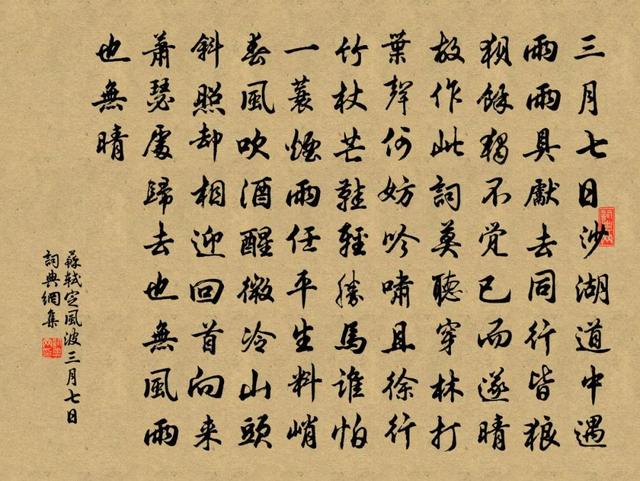 三月七日沙湖道中遇
雨雨具獻去同行皆狼
狽餘獨不覺已而遂晴
故作此詞莫聽穿林打
葉聲何妨吟嘯且徐行
竹杖芒鞋輕勝馬誰怕
一蓑煙雨任平生料峭
春風吹酒醒微冷山頭
斜照却相迎回首向来
蕭瑟處歸去也無風雨
也無晴
蘇軾定風波三月七日
詞典網集